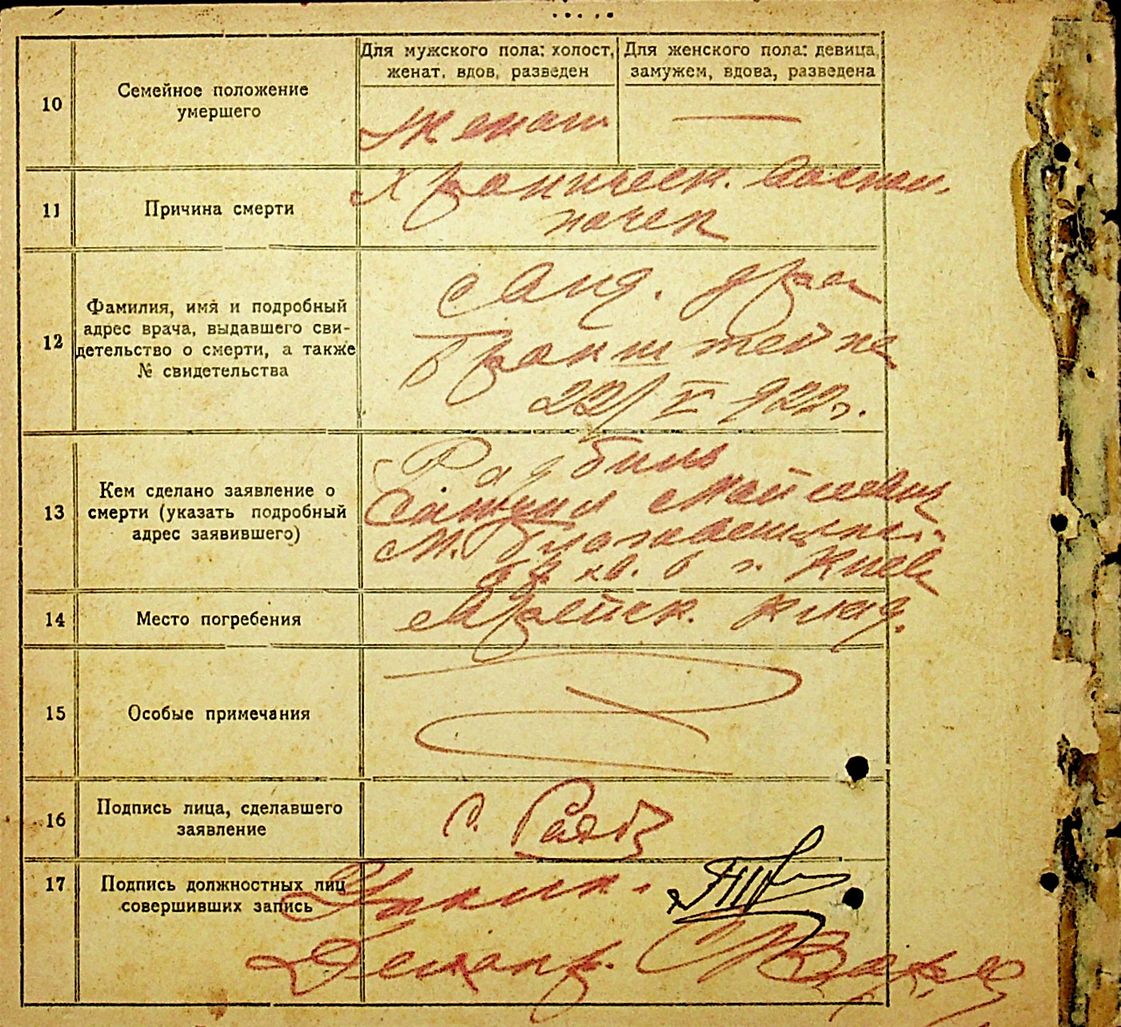 Для мужского пола: холост,
женат, вдов, разведен
Для женского пола: девица,
замужем, вдова, разведена
10
Семейное положение
умершего
Женат
—
11
Причина смерти
Хроническ. воспал.
почек
12
Фамилия, имя и подробный
адрес врача, выдавшего сви-
детельство о смерти, а также
№ свидетельства
врач
Бронштейна
22/V
13
Кем сделано заявление о
смерти (указать подробный
адрес заявившего)
Радбиль
Самуил Мойсеевич
М. Благовещенск.
кв. 6 г. Киев
14
Место погребения
еврейск. клад.
15
Особые примечания
16
Подпись лица, сделавшего
заявление
С. Радб
17
Подпись должностных лиц
совершивших запись
Делопр.